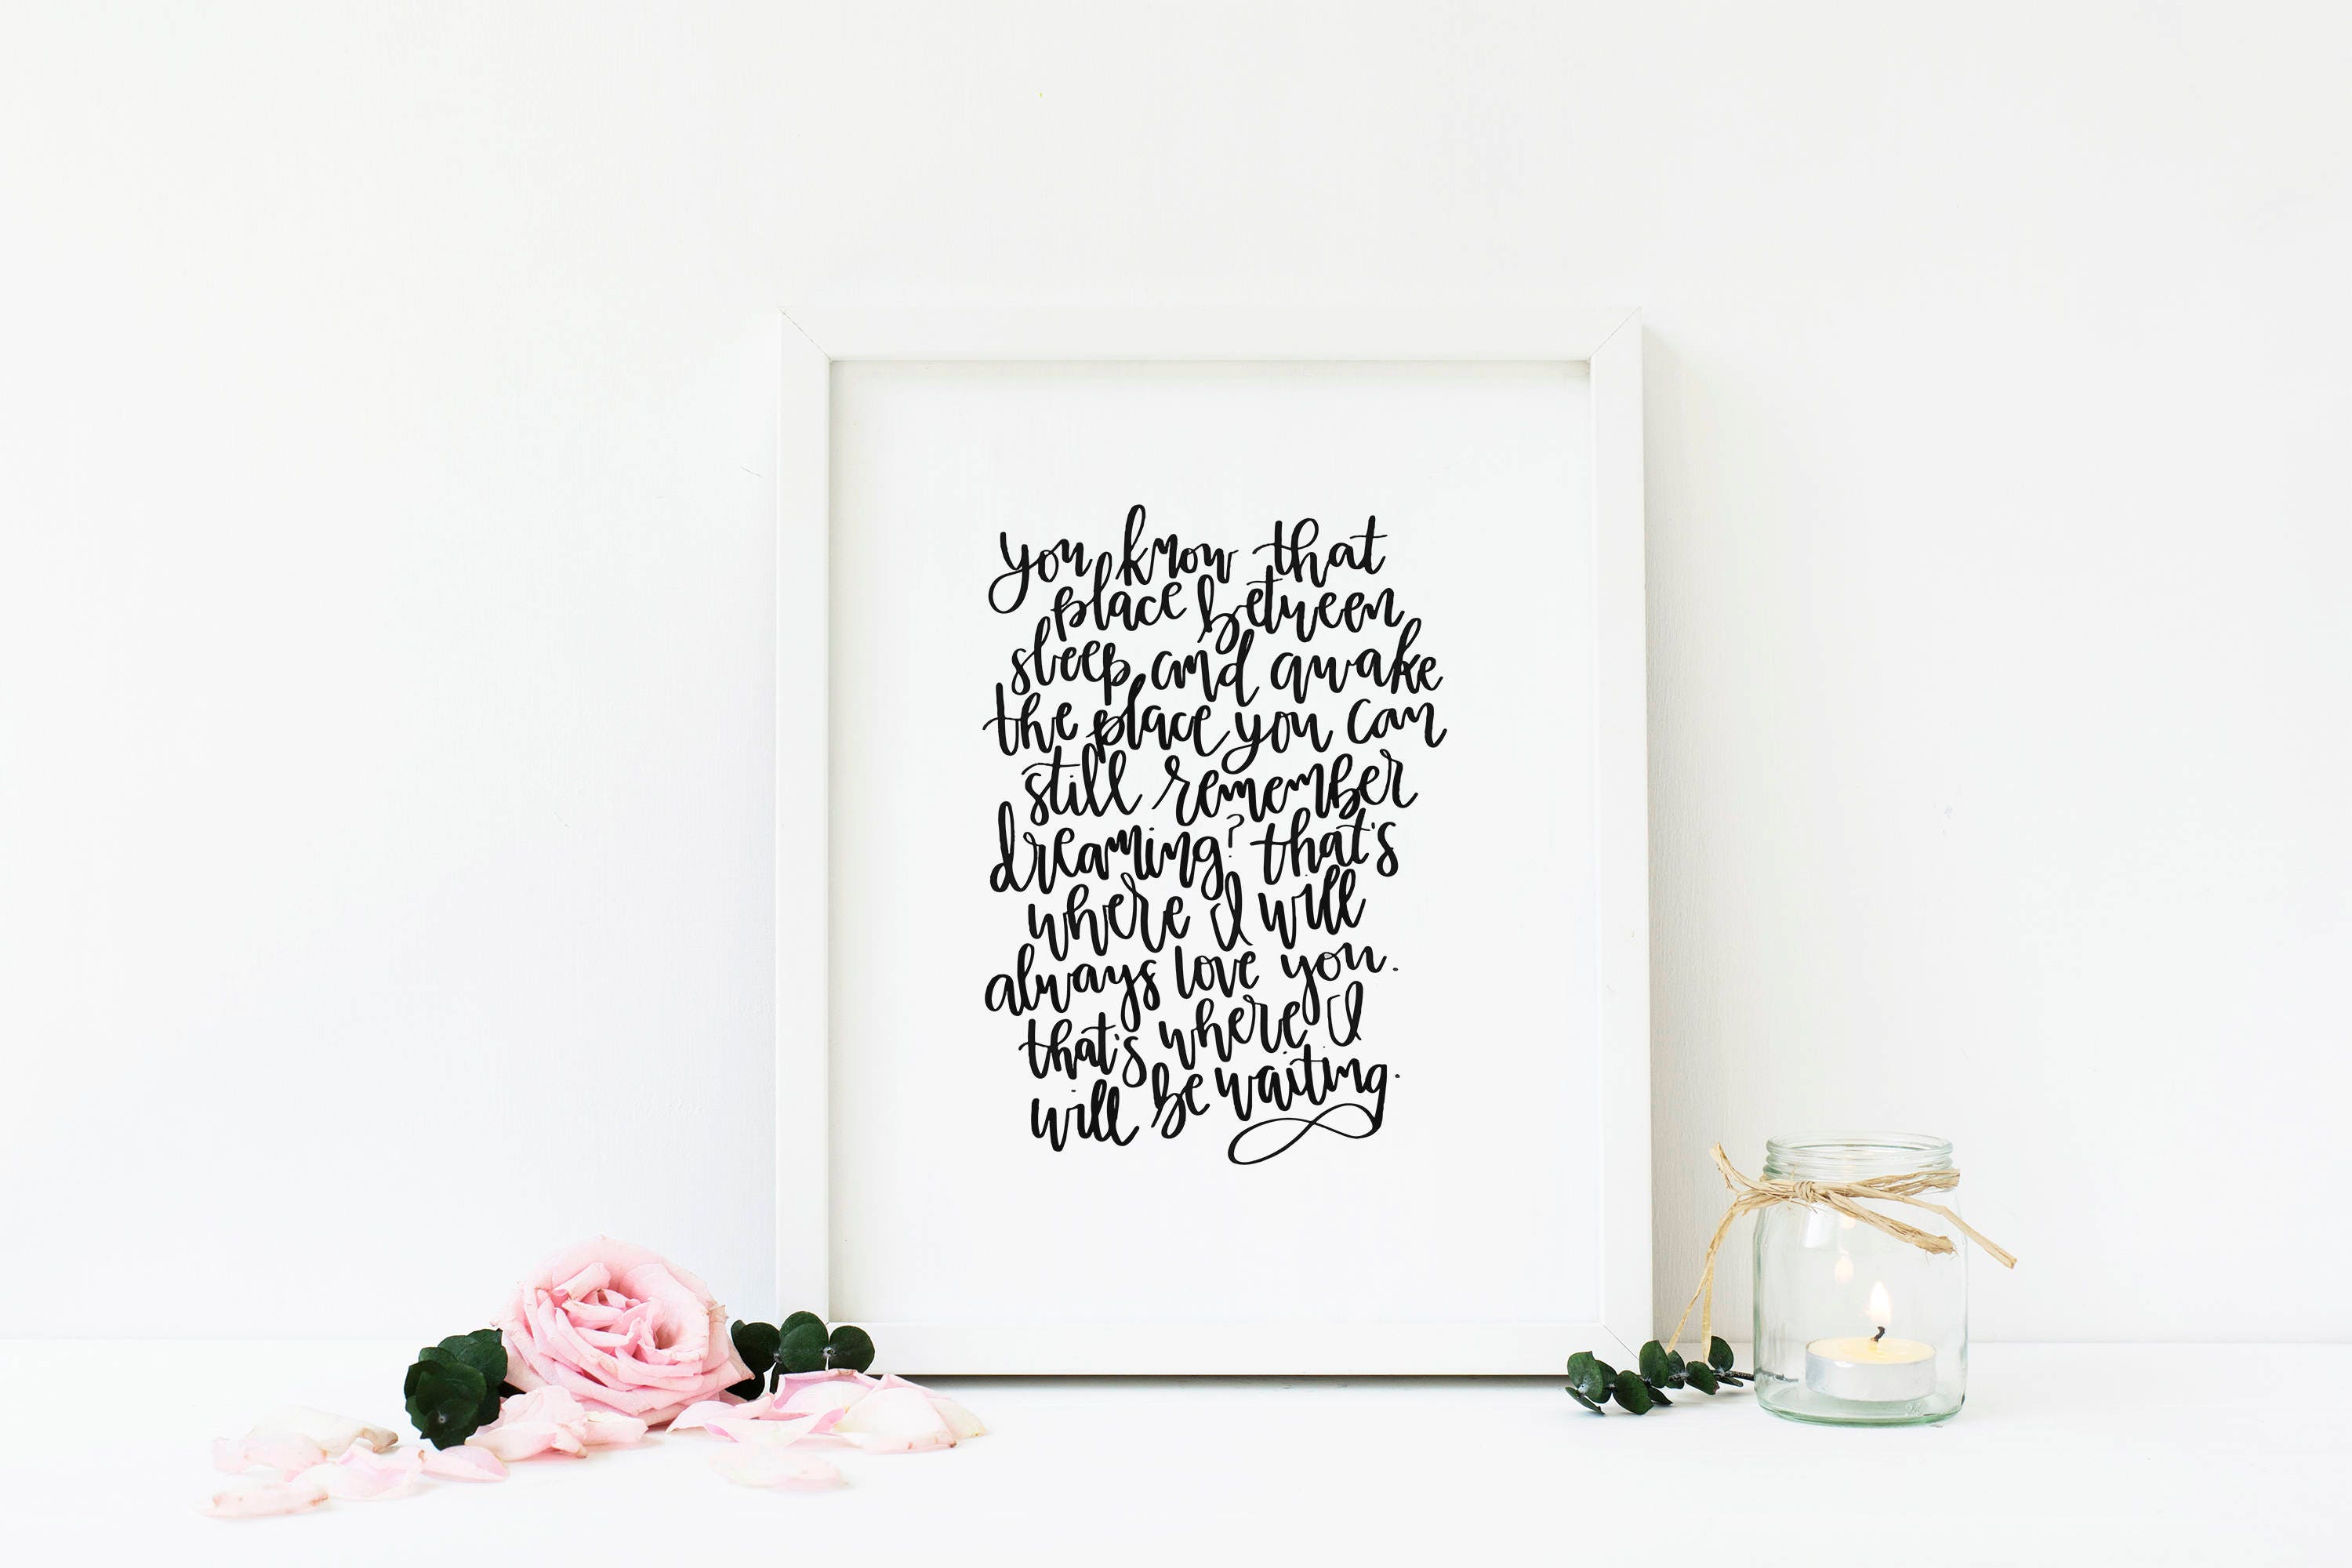 you know that
place between
sleep and awake
the place you can
still remember
dreaming? that's
where I will
always love you.
that's where I
will be waiting.